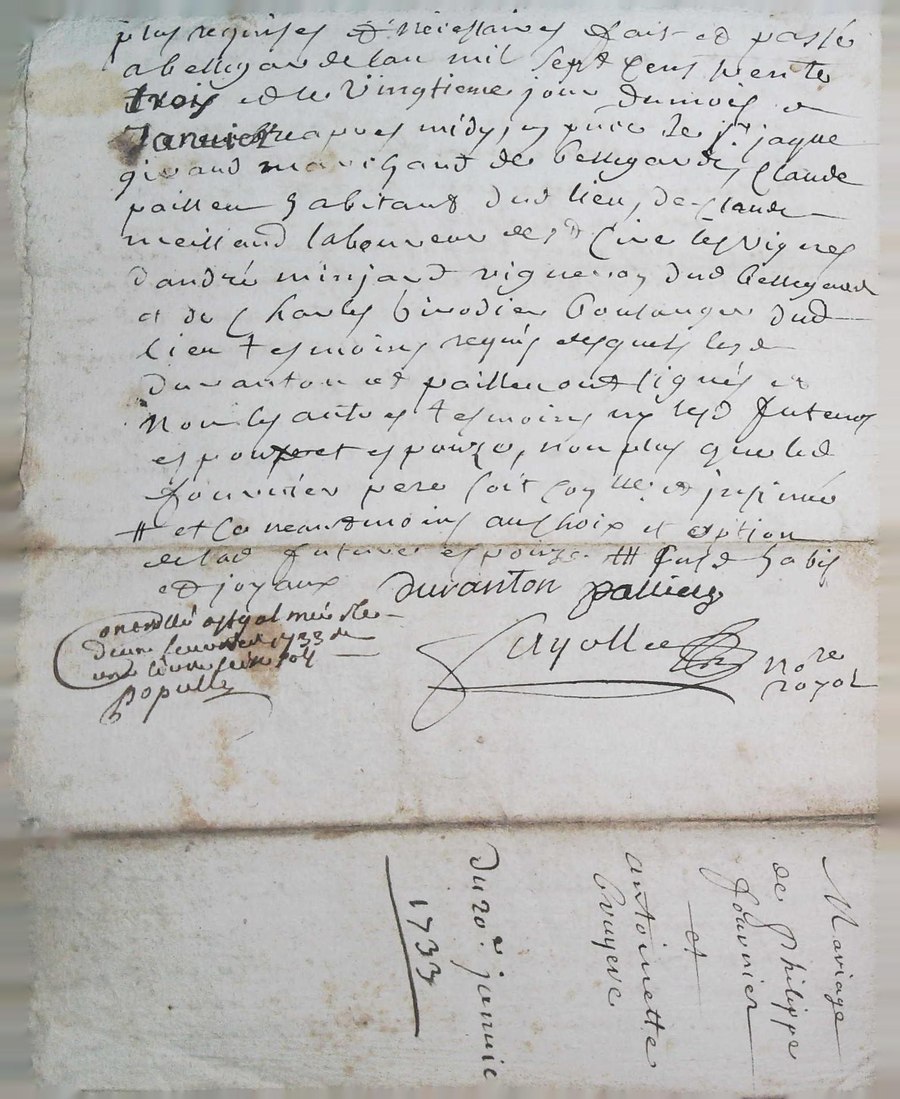 plus requises et nécessaires fait et passé
a bellegarde lan mil sept cens trente
trois et le vingtieme jour du mois de
Janvier apres midy, en pnce de Sr jaque
girand marchant de bellegarde, Claude
pailleu habitant dud lieu, de Claude
meilland laboureur de st Cire les vignes
dandré minjard vigneron dud bellegarde
et de Charles birodier boulanger dud
lieu tesmoins requis desquels led
duranton et pailleu ont signés et
Non les autres tesmoins ny lesd futeurs
espoux et espouze, non plus que led
fournier pere soit et insinué
# et ce neantmoins au choix et option
de lad future espouze # habis
et joyaux duranton pallieu
Controllé a
1733
une livre
Populle
Nore
royal
Mariage
de Philippe
fournier
et
antoinette
bruyere
du 20e janvie
1733